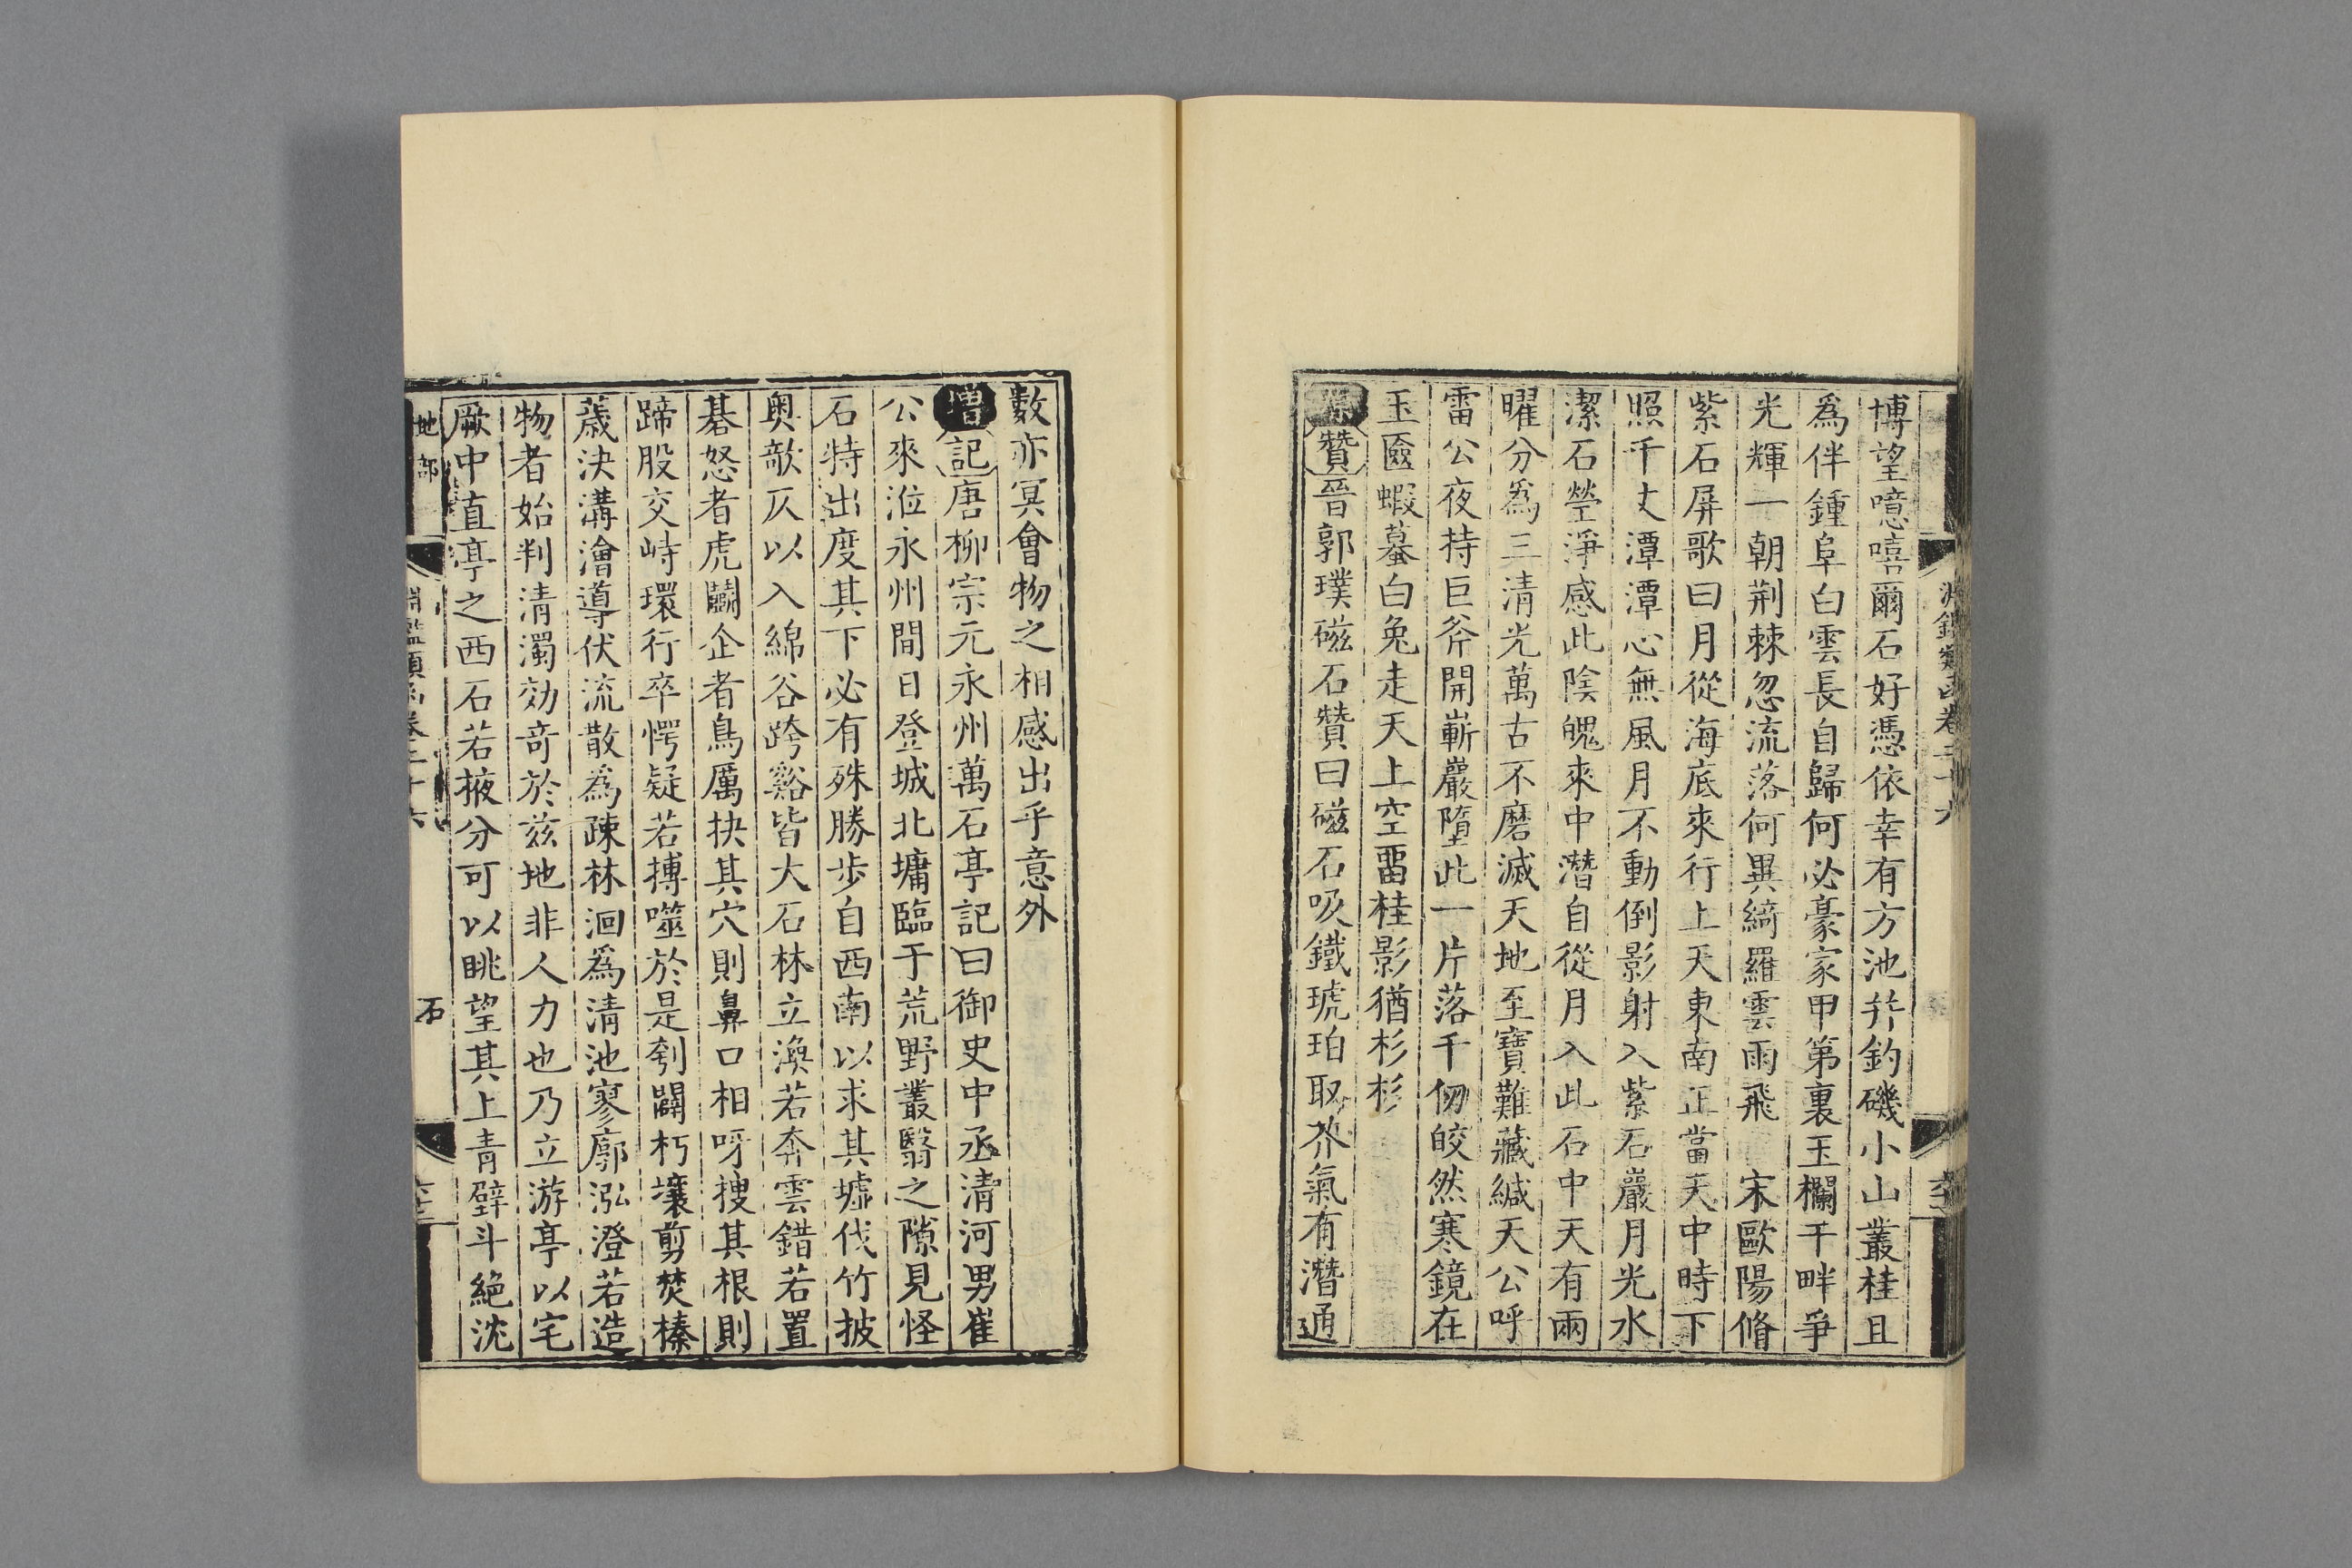 博望噫嘻爾石好憑依幸有方池幷釣磯小山叢桂且
爲伴鍾阜白雲長自歸何必豪家甲第裏玉欄干畔爭
光輝一朝荆棘忽流落何異綺羅雲雨飛　宋歐陽脩
紫石屏歌曰月從海底來行上天東南正當天中時下
照千丈潭潭心無風月不動倒影射入紫石巖月光水
潔石瑩淨感此陰魄來中潛自從月入此石中天有兩
曜分爲三清光萬古不磨滅天地至寶難藏緘天公呼
雷公夜持巨斧開嶄巖墮此一片落千仞皎然寒鏡在
玉匳蝦蟇白兔走天上空畱桂影猶杉杉
贊晉郭璞磁石贊曰磁石吸鐵琥珀取芥氣有潛通
數亦冥會物之相感出乎意外
增記唐柳宗元永州萬石亭記曰御史中丞清河男崔
公來涖永州間日登城北墉臨于荒野叢翳之隙見怪
石特出度其下必有殊勝步自西南以求其墟伐竹披
奥欹仄以入綿谷跨谿皆大石林立渙若奔雲錯若置
碁怒者虎鬭企者鳥厲抉其穴則鼻口相呀搜其根則
蹄股交峙環行卒愕疑若搏噬於是刳闢朽壤剪焚榛
薉決溝澮導伏流散爲疎林洄爲清池寥廓泓澄若造
物者始判清濁効奇於兹地非人力也乃立游亭以宅
厥中直亭之西石若掖分可以眺望其上青壁斗絶沈
地部
淵鑑類函卷二十六
石